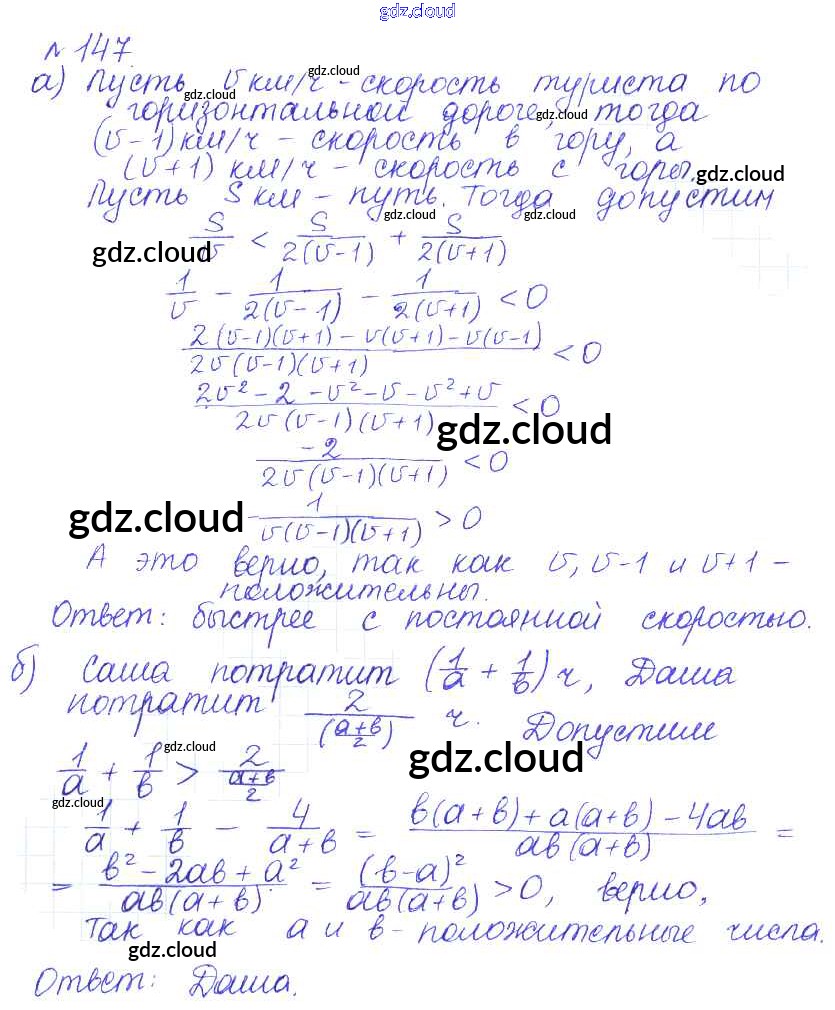 gdz.cloud
№ 147
а) Пусть v км/ч - скорость туриста по
gdz.cloud
gdz.cloud
горизонтальной дороге, тогда
gdz.cloud
(v-1) км/ч - скорость в гору, а
(v+1) км/ч - скорость с горы.
gdz.cloud
Пусть S км - путь. Тогда допустим
gdz.cloud gdz.cloud
S/v < S/2(v-1) + S/2(v+1)
gdz.cloud
1/v - 1/2(v-1) - 1/2(v+1) < 0
2(v-1)(v+1) - v(v+1) - v(v-1) / 2v(v-1)(v+1) < 0
2v² - 2 - v² - v - v² + v / 2v(v-1)(v+1) < 0
gdz.cloud
-2 / 2v(v-1)(v+1) < 0
gdz.cloud
-1 / v(v-1)(v+1) > 0
А это верно, так как v, v-1 и v+1 -
положительны.
Ответ: быстрее с постоянной скоростью.
б) Саша потратит (1/a + 1/b) ч, Даша
потратит 2/((a+b)/2) ч. Допустим
gdz.cloud
gdz.cloud
1/a + 1/b > 2/((a+b)/2)
gdz.cloud
1/a + 1/b - 4/a+b = b(a+b) + a(a+b) - 4ab / ab(a+b) =
= b² - 2ab + a² / ab(a+b) = (b-a)² / ab(a+b) > 0, верно,
так как a и b - положительные числа.
gdz.cloud
Ответ: Даша.